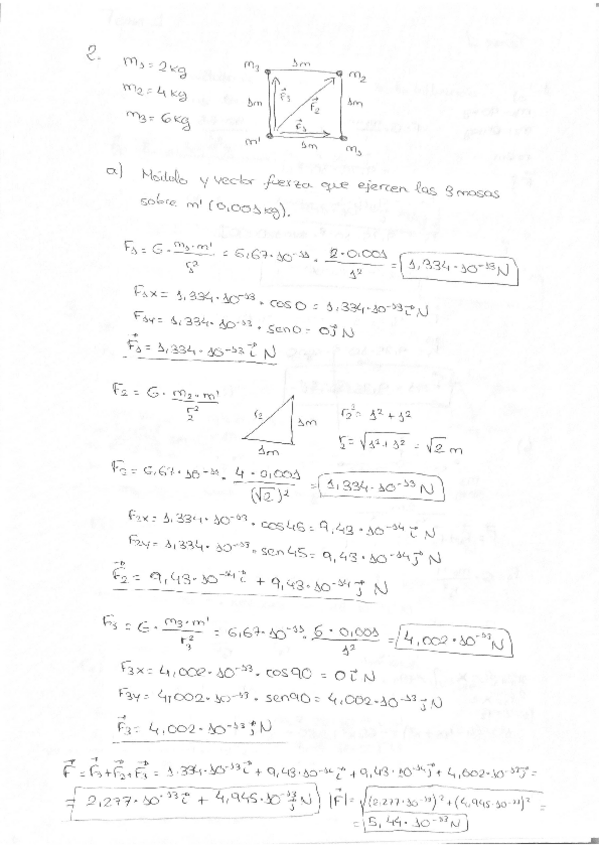 2.
m₁ = 2 kg
m₂ = 4 kg
m₃ = 6 kg
m₃ 1m m₂
1m F⃗₃ F⃗₂ 1m
F⃗₁
m' 1m m₁
a) Módulo y vector fuerza que ejercen las 3 masas
sobre m' (0,001 kg).
F₁ = G · m₁·m'/r₁² = 6,67·10⁻¹¹ · 2·0,001/1² = 1,334·10⁻¹³ N
F₁x = 1,334·10⁻¹³ · cos 0 = 1,334·10⁻¹³ i⃗ N
F₁y = 1,334·10⁻¹³ · sen 0 = 0 j⃗ N
F⃗₁ = 1,334·10⁻¹³ i⃗ N
F₂ = G · m₂·m'/r₂²
r₂ 1m 1m
r₂² = 1² + 1²
r₂ = √(1² + 1²) = √2 m
F₂ = 6,67·10⁻¹¹ · 4·0,001/(√2)² = 1,334·10⁻¹³ N
F₂x = 1,334·10⁻¹³ · cos 45 = 9,43·10⁻¹⁴ i⃗ N
F₂y = 1,334·10⁻¹³ · sen 45 = 9,43·10⁻¹⁴ j⃗ N
F⃗₂ = 9,43·10⁻¹⁴ i⃗ + 9,43·10⁻¹⁴ j⃗ N
F₃ = G · m₃·m'/r₃² = 6,67·10⁻¹¹ · 6·0,001/1² = 4,002·10⁻¹³ N
F₃x = 4,002·10⁻¹³ · cos 90 = 0 i⃗ N
F₃y = 4,002·10⁻¹³ · sen 90 = 4,002·10⁻¹³ j⃗ N
F⃗₃ = 4,002·10⁻¹³ j⃗ N
F⃗ = F⃗₁ + F⃗₂ + F⃗₃ = 1,334·10⁻¹³ i⃗ + 9,43·10⁻¹⁴ i⃗ + 9,43·10⁻¹⁴ j⃗ + 4,002·10⁻¹³ j⃗ =
= 2,277·10⁻¹³ i⃗ + 4,945·10⁻¹³ j⃗ N |F⃗| = √((2,277·10⁻¹³)² + (4,945·10⁻¹³)²) =
= 5,44·10⁻¹³ N